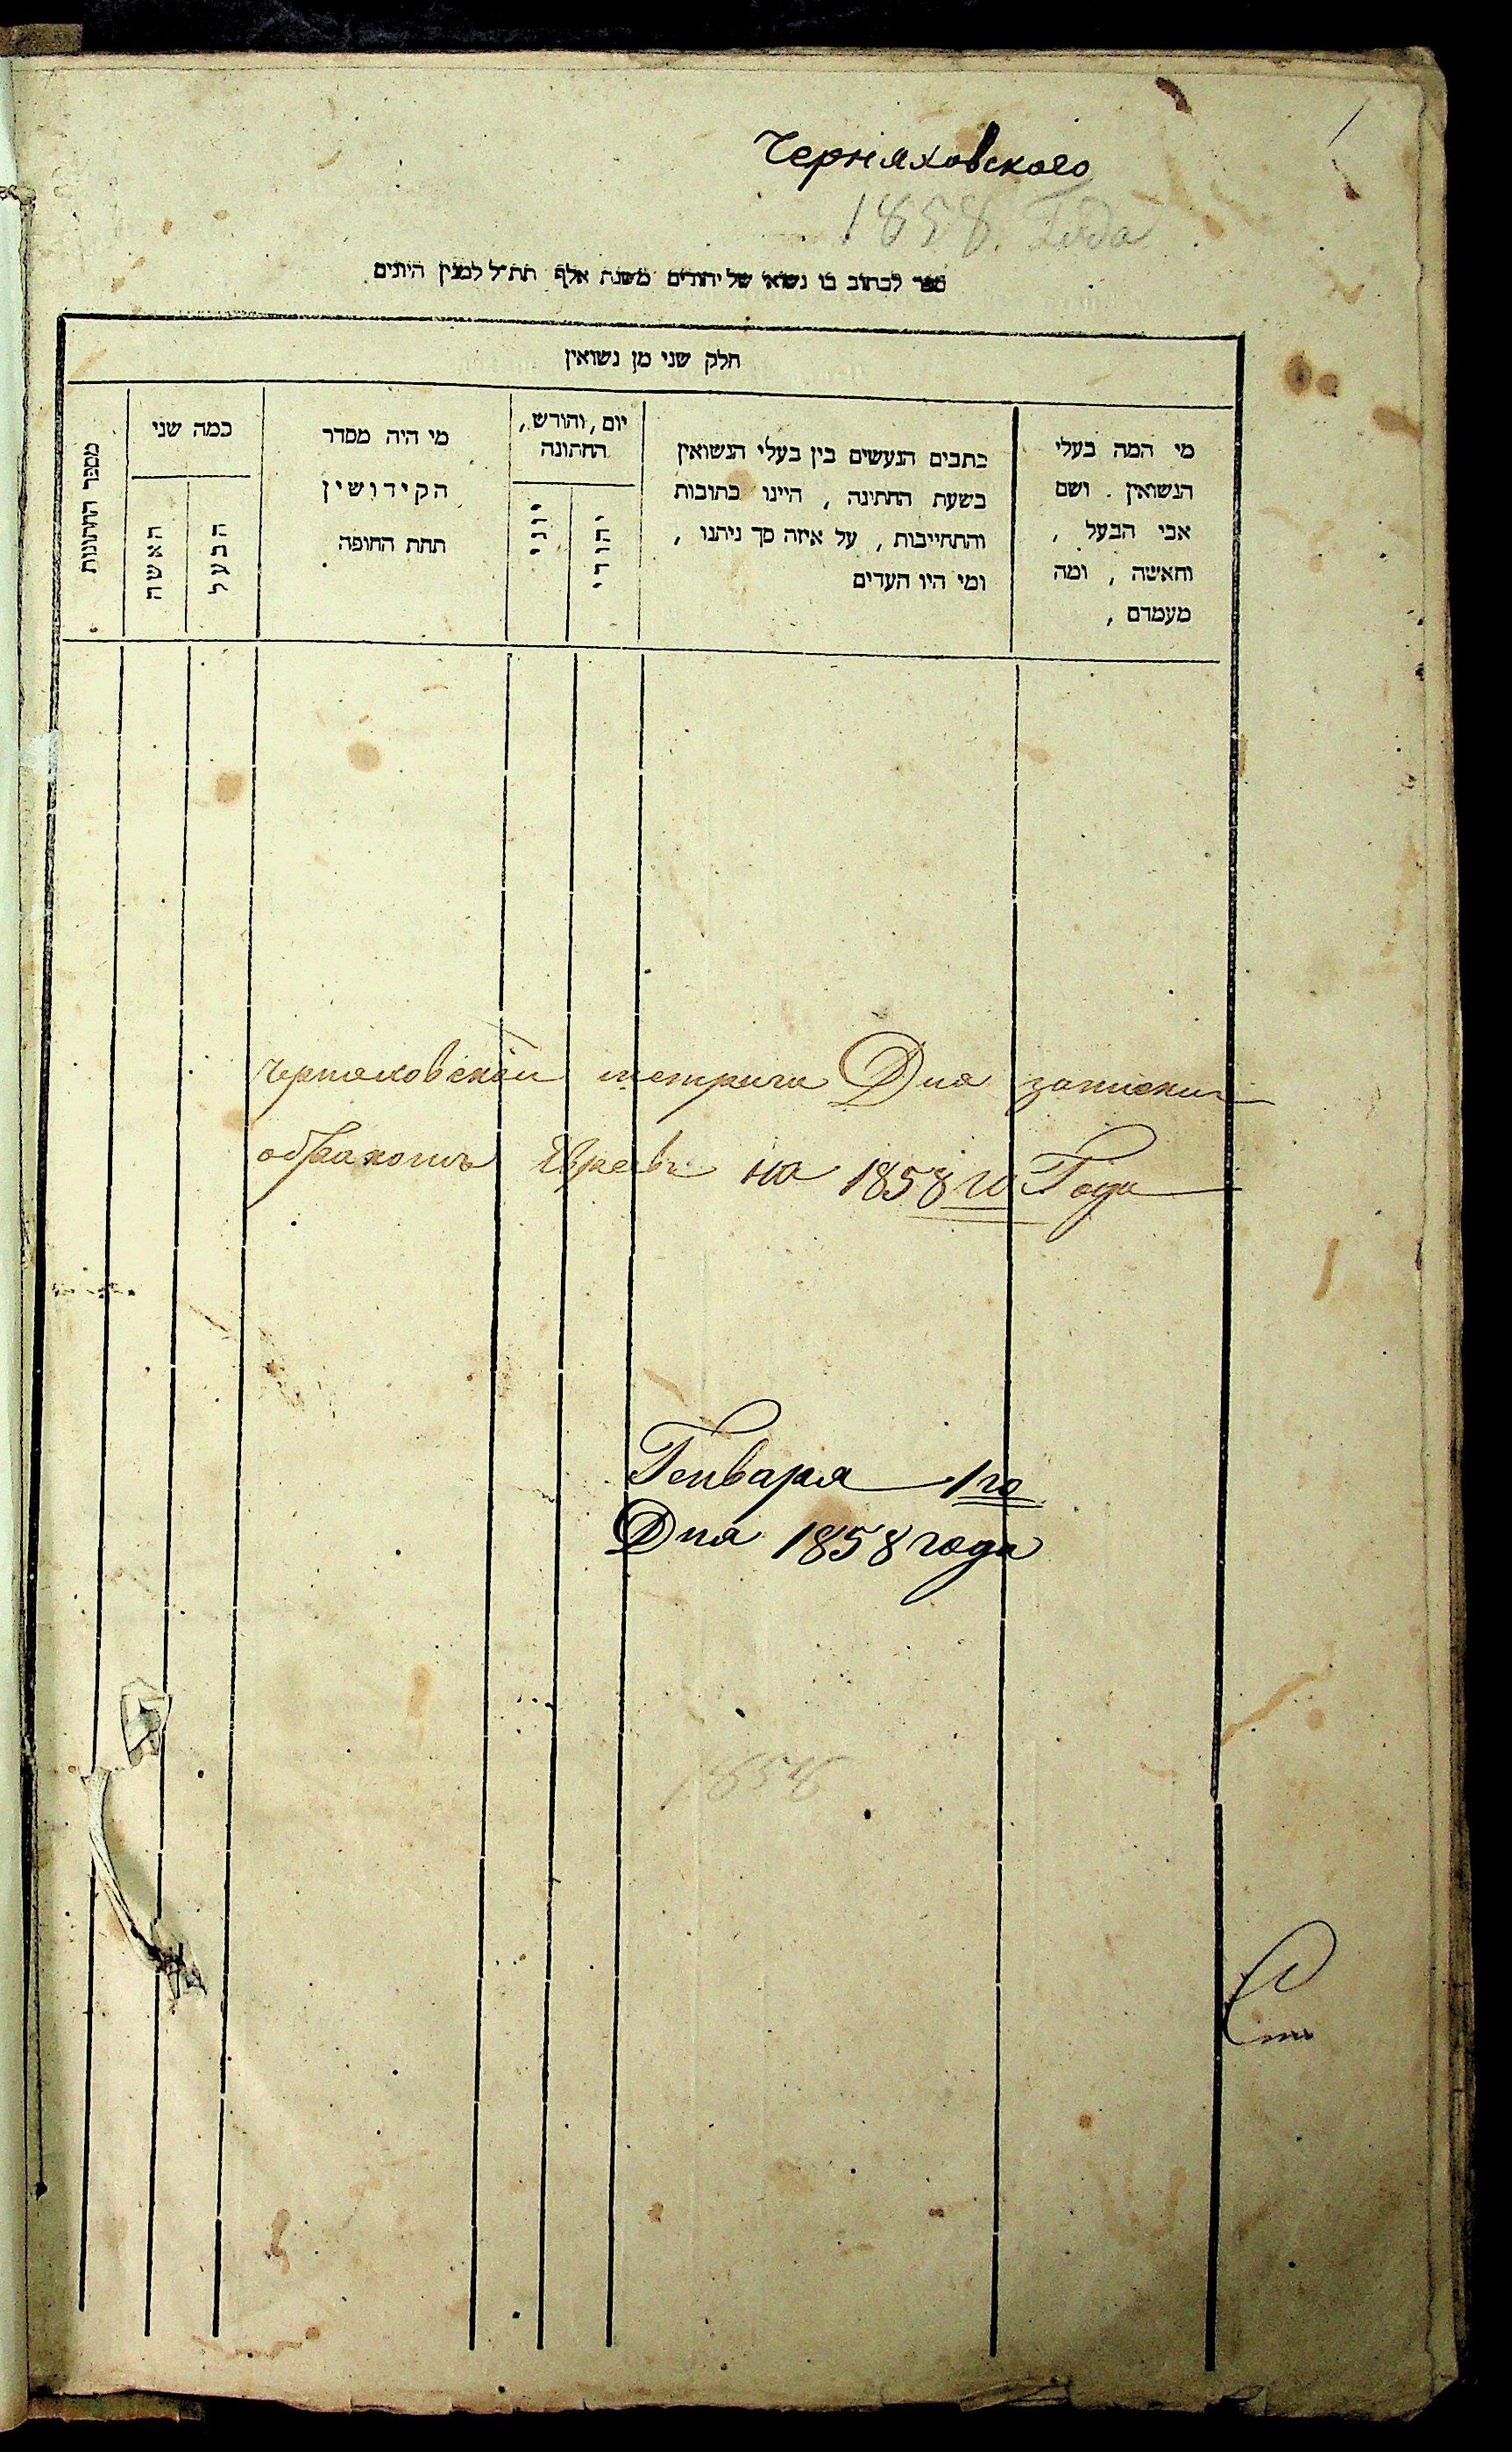 Черняховского
1858. Года
ספר לכתוב בו נשואי של יהודים משנת אלף תת״ל למנין היונים
חלק שני מן נשואין
מי המה בעלי
הנשואין . ושם
אבי הבעל ,
והאשה , ומה
מעמדם ,
כתבים הנעשים בין בעלי הנשואין
בשעת החתינה , היינו כתובות
והתחייבות , על איזה סך ניתנו ,
ומי היו העדים
יום, וחודש,
החתונה
יהודי
יוני
מי היה מסדר
הקידושין
תחת החופה
כמה שני
הבעל
האשה
מספר החתונות
Черняховской метрики Для записки
о бракомъ Евреевъ на 1858 го Года
Генваря 1го
Дня 1858 года
1858